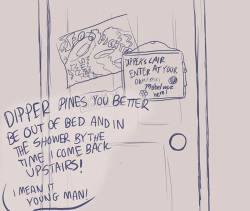 DIPPER'S LAIR
ENTER AT YOUR
Mabel was
here!
DIPPER PINES YOU BETTER
BE OUT OF BED AND IN
THE SHOWER BY THE
TIME I COME BACK
UPSTAIRS!
I MEAN IT
YOUNG MAN!